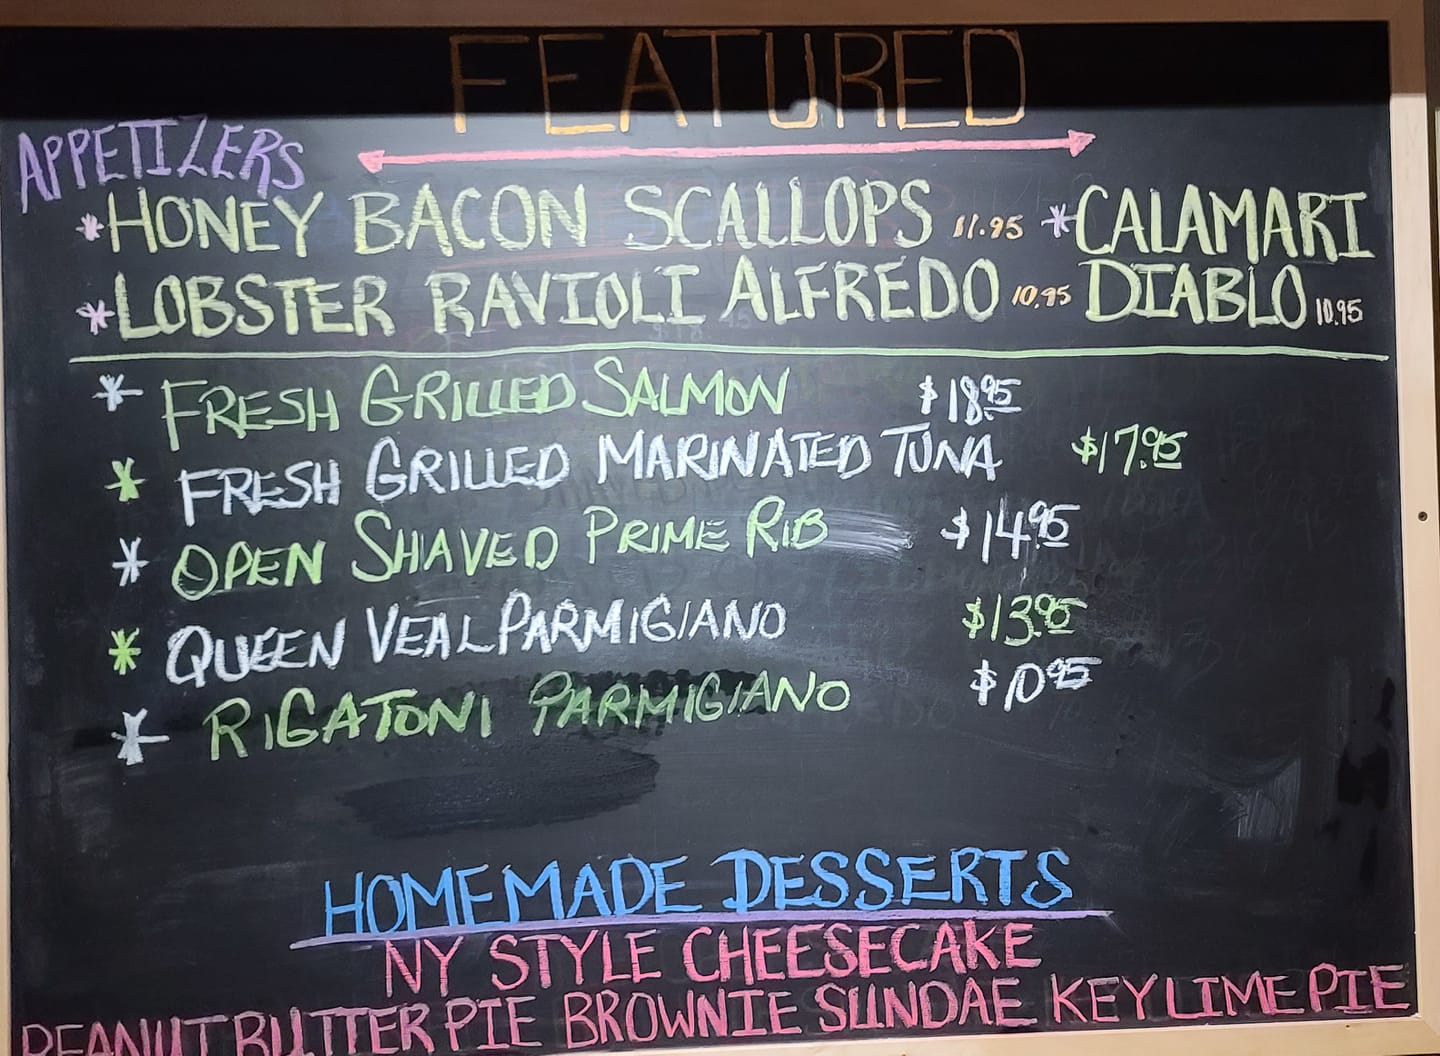 FEATURED
APPETIZERS
*HONEY BACON SCALLOPS 11.95 *CALAMARI
*LOBSTER RAVIOLI ALFREDO 10.95 DIABLO 10.95
* FRESH GRILLED SALMON $18.95
* FRESH GRILLED MARINATED TUNA $17.95
* OPEN SHAVED PRIME RIB $14.95
* QUEEN VEAL PARMIGIANO $13.95
* RIGATONI PARMIGIANO $10.95
HOMEMADE DESSERTS
NY STYLE CHEESECAKE
PEANUT BUTTER PIE BROWNIE SUNDAE KEY LIME PIE